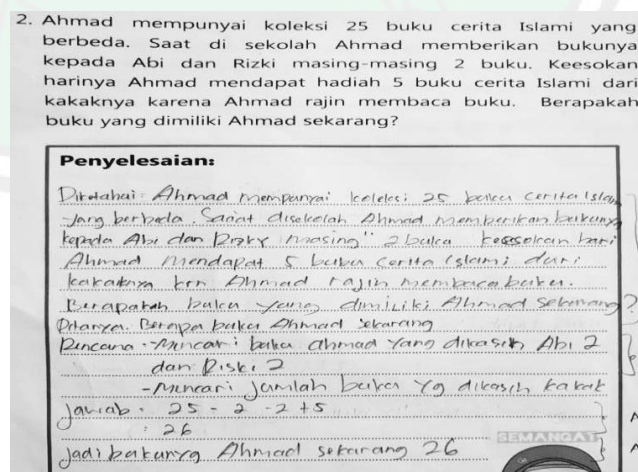 2. Ahmad mempunyai koleksi 25 buku cerita Islami yang
berbeda. Saat di sekolah Ahmad memberikan bukunya
kepada Abi dan Rizki masing-masing 2 buku. Keesokan
harinya Ahmad mendapat hadiah 5 buku cerita Islami dari
kakaknya karena Ahmad rajin membaca buku. Berapakah
buku yang dimiliki Ahmad sekarang?
Penyelesaian:
Diketahui: Ahmad mempunyai koleksi 25 buku cerita Islam
yang berbeda. Saat disekolah Ahmad memberikan bukunya
kepada Abi dan Rizky masing" 2 buku keesokan hari
Ahmad mendapat 5 buku cerita Islami dari
kakaknya krn Ahmad rajin membaca buku.
Berapakah buku yang dimiliki Ahmad sekarang?
Ditanya. Berapa buku Ahmad sekarang
Rencana - Mencari buku ahmad yang dikasih Abi 2
dan Riski 2
- Mencari jumlah buku yg dikasih kakak
Jawab : 25 - 2 - 2 + 5
: 26
Jadi bukunya Ahmad sekarang 26
SEMANGAT